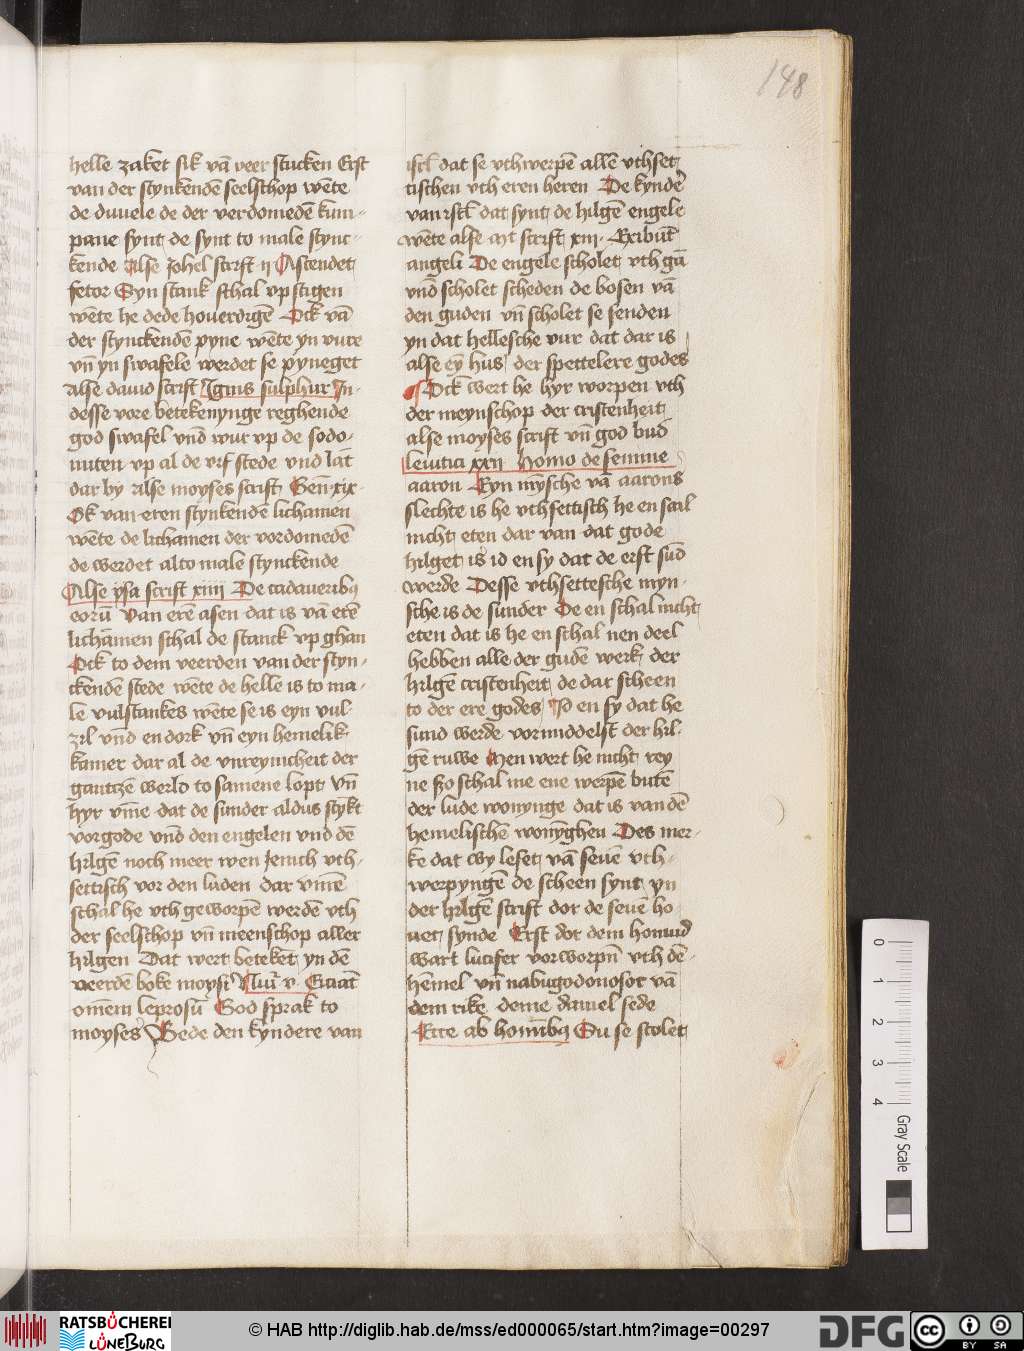 148
helle zaket sik vā veer stucken Erst
van der stynkendē seelschop wēte
de duuele de der verdomedē kum-
pane synt de synt to male stync-
kende Alse Johel scrift ij Ascendet
fetor Eyn stank schal vp stigen
wēte he dede houerdigē Ock vā
der stynckendē pyne wēte yn vure
vn̄ yn swafele werdet se pyneget
alse dauid scrift Ignis sulphur In
desse vore betekenynge reghende
god swafel vnd wur vp de sodo-
miten vp al de vrf stede vnd lāt
dar by alse moyses scrift Gen̄ xix
Ok van eren stynkendē lichamen
wēte de lichamen der vordomedē
de werdet alto male stynckende
Alse ysa scrift xiiii De cadaueribꝫ
eorū Van erē asen dat is vā erē
lichāmen schal de stanck vp ghan
Ock to dem veerden van der styn-
ckendē stede wēte de helle is to ma-
le vulstankes wēte se is eyn vul-
zil vnd en dork vn̄ eyn hemelik
kamer dar al de vnreynicheit der
gantzē werld to samene lopt vn̄
hyr vm̄e dat de sunder aldus stykt
vor gode vnd den engelen vnd dē
hilgē noch meer wen Jenich vth-
settisch vor den luden dar vmē
schal he vth geworpē werdē vth
der seelschop vn̄ meenschop aller
hilgen Dat wert beteket yn dē
veerdē boke moysi Nūi v Eiciāt
om̄em leprosū God sprak to
moyses Bede den kyndere van
isrl̄ dat se vthwerpē allē vthset
tischen vth eren heren De kyndē
van isrl̄ dat synt de hilgē engele
wēte alse mt scrift xiii Exibūt
angeli De engele scholet vth gā
vnd scholet scheden de bosen vā
den guden vn̄ scholet se senden
yn dat hellesche vur dat dar is
alse ey hus der spettelere godes
Ock wert he hyr worpen vth
der meynschop der cristenheit
alse moyses scrift vn̄ god bud
leuitici xxii Homo de semine
aaron Eyn mysche vā aarons
slechte is he vthsettisch he en sal
nicht eten dar van dat gode
hilget is id en sy dat de erst sūd
werde Desse vthsettesche myn-
sche is de sunder De en schal nicht
eten dat is he en schal nen deel
hebben alle der gudē werk der
hilgē cristenheit de dar scheen
to der ere godes Id en sy dat he
sund werde vormiddelst der hil-
gē ruwe Men wert he nicht rey
ne szo schal me ene werpē butē
der lude wonynge dat is van dē
hemelischē wonyghen Des mer-
ke dat wy leset vā seuē vth-
werpyngē de scheen synt yn
der hilgē scrift dor de seuē ho
uet synde Erst dor dem homud
wart lucifer vorworpn̄ vth dē
hēmel vn̄ nabugodonosor vā
dem rike deme daniel sede
Ecce ab homībꝫ Du se scolet
0 1 2 3 4
Gray Scale
RATSBÜCHEREI
LÜNEBURG
© HAB http://diglib.hab.de/mss/ed000065/start.htm?image=00297
DFG
cc BY SA